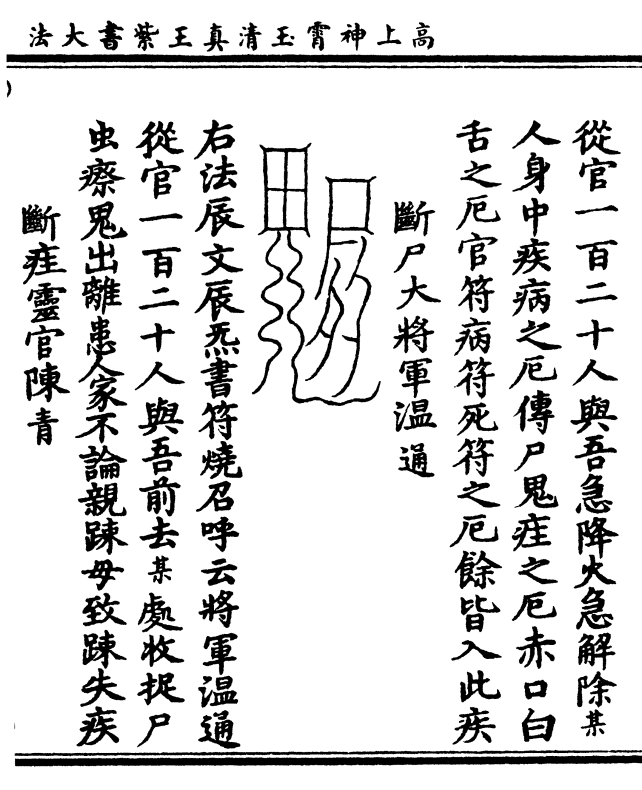 高上神霄玉清真王紫書大法
從官一百二十人與吾急降火急解除某
人身中疾病之厄傳尸鬼疰之厄赤口白
舌之厄官符病符死符之厄餘皆入此疾
斷尸大將軍温通
右法辰文辰炁書符燒召呼云將軍温通
從官一百二十人與吾前去某處收捉尸
虫瘵鬼出離患人家不論親踈毋致踈失疾
斷疰靈官陳青